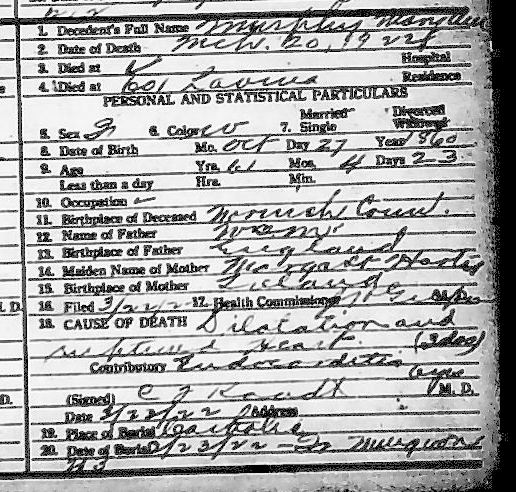 1. Decedent's Full Name Murphy
2. Date of Death Mch. 20, 1922
3. Died at Hospital
4. Died at 601 Residence
PERSONAL AND STATISTICAL PARTICULARS
Married Divorced
5. Sex F 6. Color W 7. Single Widowed
8. Date of Birth Mo. Oct Day 27 Year 1860
9. Age Yrs. 61 Mos. 4 Days 23
Less than a day Hrs. Min.
10. Occupation
11. Birthplace of Deceased Norwich Conn.
12. Name of Father Wm
13. Birthplace of Father England
14. Maiden Name of Mother Margaret
15. Birthplace of Mother Ireland
16. Filed 3/22/2 17. Health Commissioner
H. D.
18. CAUSE OF DEATH Dilatation and
ruptured heart. (2 dos)
Contributory Endocarditis
(Signed) C J M. D.
D.
Date 3/23/22 Address
19. Place of Burial Catholic
20. Date of Burial 3/23/22